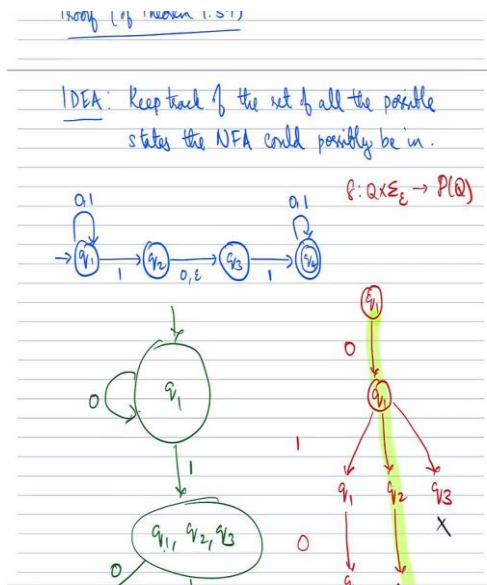 Proof (of Theorem 1.39)
IDEA: Keep track of the set of all the possible
states the NFA could possibly be in.
δ: Q×Σε → P(Q)
0,1 0,1
q1 q2 q3 q4
1 0,ε 1
q1
0
0 q1 q1
1 1
q1 q2 q3
q1, q2, q3 x
0
0